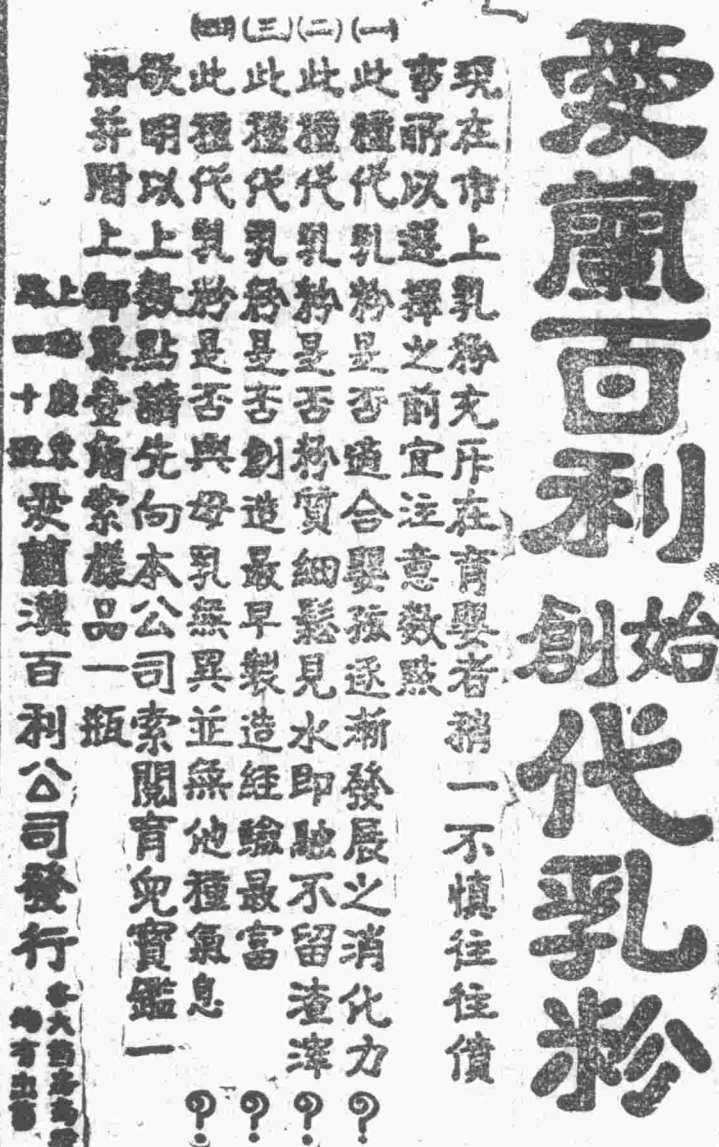 愛蘭百利始創代乳粉
現在市上乳粉充斥在育嬰者稍一不慎往往僨
事所以選擇之前宜注意數點
(一)此種代乳粉是否適合嬰孩逐漸發展之消化力?
(二)此種代乳粉是否粉質細鬆見水即融不留渣滓?
(三)此種代乳粉是否創造最早製造經驗最富?
(四)此種代乳粉是否與母乳無異並無他種氣息?
欲明以上數點請先向本公司索閱育兒寶鑑一
冊并附上郵票壹角索樣品一瓶
上海慶
路一十
愛蘭漢百利公司發行
各大藥房
均有出